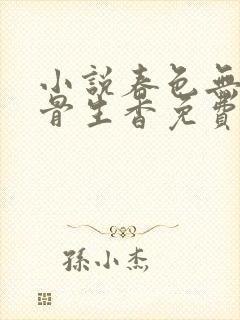 小說春色無
骨生香免費
孫小杰